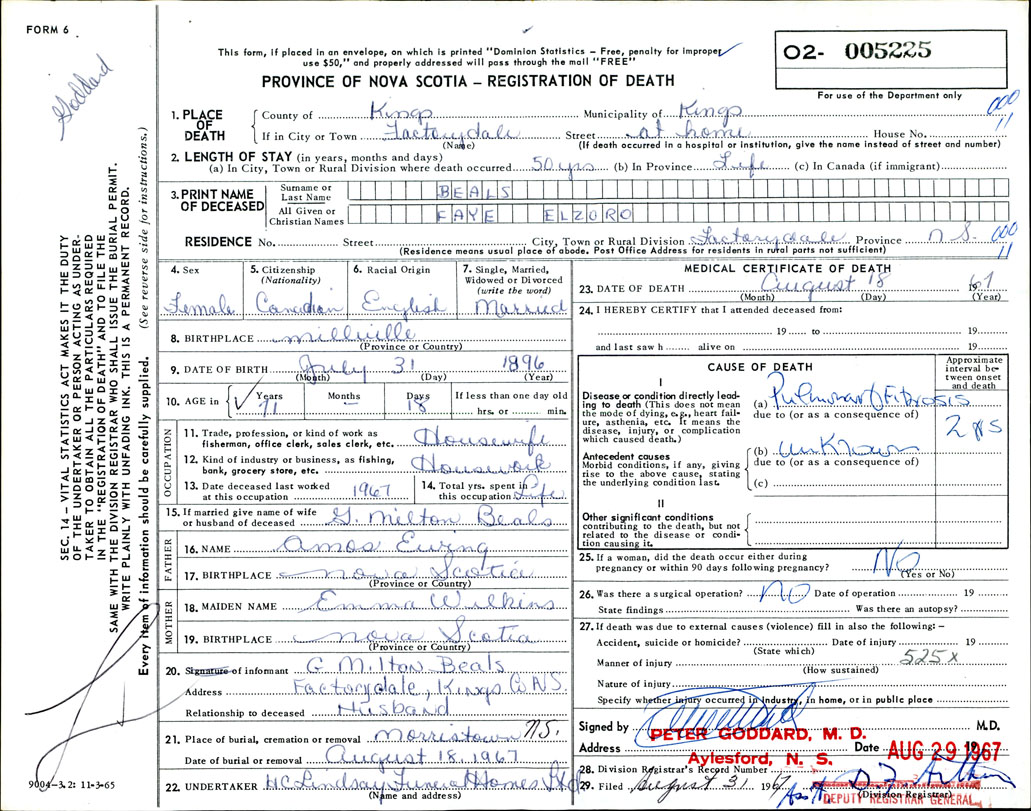 FORM 6
Goddard
This form, if placed in an envelope, on which is printed "Dominion Statistics – Free, penalty for improper
use $50," and properly addressed will pass through the mail "FREE"
PROVINCE OF NOVA SCOTIA – REGISTRATION OF DEATH
O2- 005225
For use of the Department only
000
11
SEC. 14 – VITAL STATISTICS ACT MAKES IT THE DUTY
OF THE UNDERTAKER OR PERSON ACTING AS UNDER-
TAKER TO OBTAIN ALL THE PARTICULARS REQUIRED
IN THE "REGISTRATION OF DEATH" AND TO FILE THE
SAME WITH THE DIVISION REGISTRAR WHO SHALL ISSUE THE BURIAL PERMIT.
WRITE PLAINLY WITH UNFADING INK. THIS IS A PERMANENT RECORD.
Every item of information should be carefully supplied. (See reverse side for instructions.)
1. PLACE OF DEATH
County of Kings Municipality of Kings
If in City or Town Factorydale Street at home House No.
(Name) (If death occurred in a hospital or institution, give the name instead of street and number)
2. LENGTH OF STAY (in years, months and days)
(a) In City, Town or Rural Division where death occurred 50 yrs (b) In Province Life (c) In Canada (if immigrant)
3. PRINT NAME OF DECEASED
Surname or Last Name BEALS
All Given or Christian Names FAYE ELZORO
RESIDENCE No. Street City, Town or Rural Division Factorydale Province N.S. 000
11
(Residence means usual place of abode. Post Office Address for residents in rural parts not sufficient)
4. Sex Female
5. Citizenship (Nationality) Canadian
6. Racial Origin English
7. Single, Married, Widowed or Divorced (write the word) Married
8. BIRTHPLACE Millville
(Province or Country)
9. DATE OF BIRTH July 31 1896
(Month) (Day) (Year)
10. AGE in Years 71 Months – Days 18 If less than one day old hrs. or min.
OCCUPATION
11. Trade, profession, or kind of work as fisherman, office clerk, sales clerk, etc. Housewife
12. Kind of industry or business, as fishing, bank, grocery store, etc. Housework
13. Date deceased last worked at this occupation 1967
14. Total yrs. spent in this occupation Life
15. If married give name of wife or husband of deceased G. Milton Beals
FATHER
16. NAME Amos Ewing
17. BIRTHPLACE Nova Scotia
(Province or Country)
MOTHER
18. MAIDEN NAME Emma Wilkins
19. BIRTHPLACE Nova Scotia
(Province or Country)
20. Signature of informant G Milton Beals
Address Factorydale, Kings Co NS.
Relationship to deceased Husband
21. Place of burial, cremation or removal Morristown N.S.
Date of burial or removal August 18, 1967
22. UNDERTAKER HC Lindsay Funeral Homes Ltd
(Name and address)
9004–3.2: 11-3-65
MEDICAL CERTIFICATE OF DEATH
23. DATE OF DEATH August 18 1967
(Month) (Day) (Year)
24. I HEREBY CERTIFY that I attended deceased from:
19 to 19
and last saw h alive on 19
CAUSE OF DEATH
Approximate interval between onset and death
I
Disease or condition directly leading to death (This does not mean the mode of dying, e.g., heart failure, asthenia, etc. It means the disease, injury, or complication which caused death.)
(a) Pulmonary Fibrosis
due to (or as a consequence of)
2 yrs
Antecedent causes
Morbid conditions, if any, giving rise to the above cause, stating the underlying condition last.
(b) Unknown
due to (or as a consequence of)
(c)
II
Other significant conditions
contributing to the death, but not related to the disease or condition causing it.
25. If a woman, did the death occur either during pregnancy or within 90 days following pregnancy? No
(Yes or No)
26. Was there a surgical operation? No Date of operation 19
State findings Was there an autopsy?
27. If death was due to external causes (violence) fill in also the following: –
Accident, suicide or homicide? Date of injury 19
(State which)
Manner of injury 525x
(How sustained)
Nature of injury
Specify whether injury occurred in industry, in home, or in public place
Signed by M.D.
PETER GODDARD, M. D.
Address Aylesford, N. S. Date AUG 29 1967
28. Division Registrar's Record Number
29. Filed August 31 1967
Ass't DEPUTY REGISTRAR GENERAL
(Division Registrar)